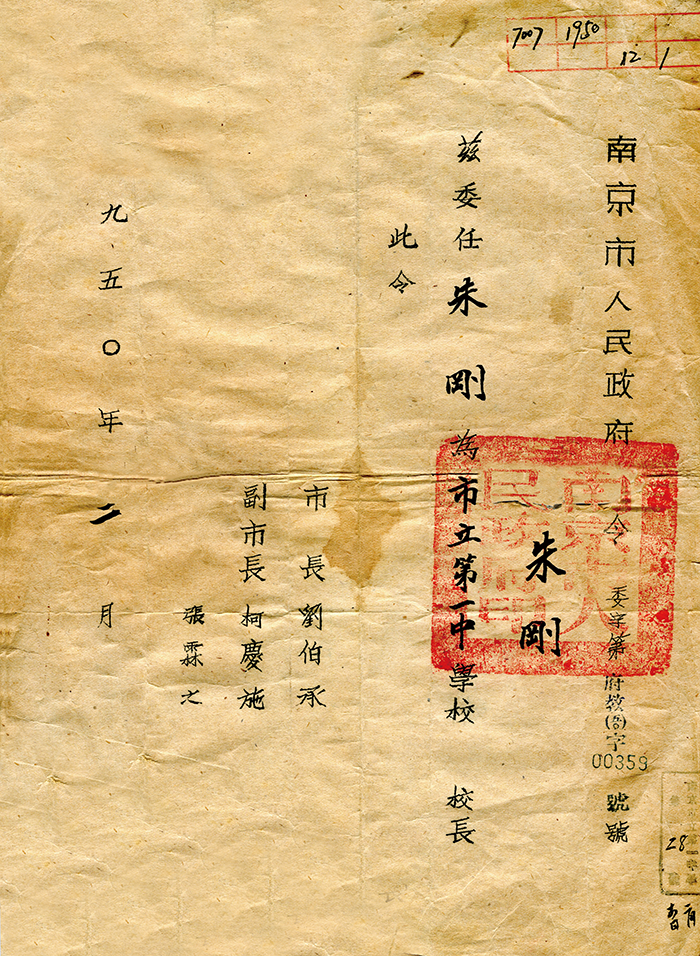 7007 1950
12 1
南京市人民政府 令 委字第 府教(咨)字 00359 號號
朱剛
茲委任朱剛為市立第一中學校 校長
此令
市長劉伯承
副市長柯慶施
張霖之
九五〇年二月
南京市人民政府印
28